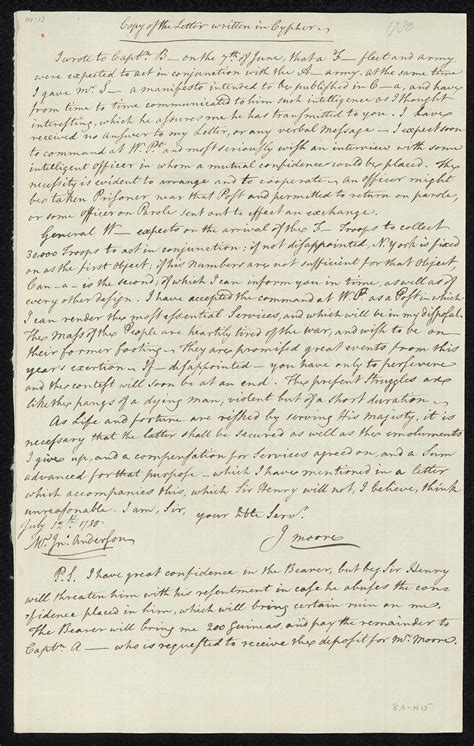 Copy of the Letter written in Cypher
1780
I wrote to Captn B— on the 7th of June, that a F— fleet and army
were expected to act in conjunction with the A— army. at the same time
I gave Mr. S— a manifesto intended to be published in C—a, and have
from time to time communicated to him such intelligence as I thought
interesting, which he assures me he has transmitted to you. I have
received no answer to my Letter, or any verbal Message — I expect soon
to command at W. Pt. and most seriously wish an interview with some
intelligent officer in whom a mutual confidence could be placed. The
necessity is evident to arrange and to cooperate — An officer might
be taken Prisoner near that Post and permitted to return on parole,
or some officer on Parole sent out to effect an exchange.
General W— expects on the arrival of the F— Troops to collect
30,000 Troops to act in conjunction; if not disappointed, N. York is fixed
on as the first Object; if his numbers are not sufficient for that Object,
Can—a— is the second; of which I can inform you in time, as well as of
every other design. I have accepted the command at W. Pt. as a Post in which
I can render the most essential Services, and which will be in my Disposal.
The Mass of the People are heartily tired of the war, and wish to be on
their former footing — They are promised great events from this
year's exertion — If — disappointed — you have only to persevere
and the contest will soon be at an end. The present Struggles are
like the pangs of a dying man, violent but of a short duration —
As Life and fortune are risked by serving His Majesty, it is
necessary that the latter shall be secured as well as the emoluments
I give up, and a compensation for Services agreed on, and a Sum
advanced for that purpose — which I have mentioned in a letter
which accompanies this, which Sir Henry will not, I believe, think
unreasonable. I am, Sir, your Hble Servt.
July 12th. 1780.
Mr. Jno. Anderson
J Moore
P.S. I have great confidence in the Bearer, but beg Sir Henry
will threaten him with his resentment in case he abuses the con=
=fidence placed in him, which will bring certain ruin on me.
The Bearer will bring me 200 Guineas, and pay the remainder to
Captn A— who is requested to receive the deposit for Mr. Moore.